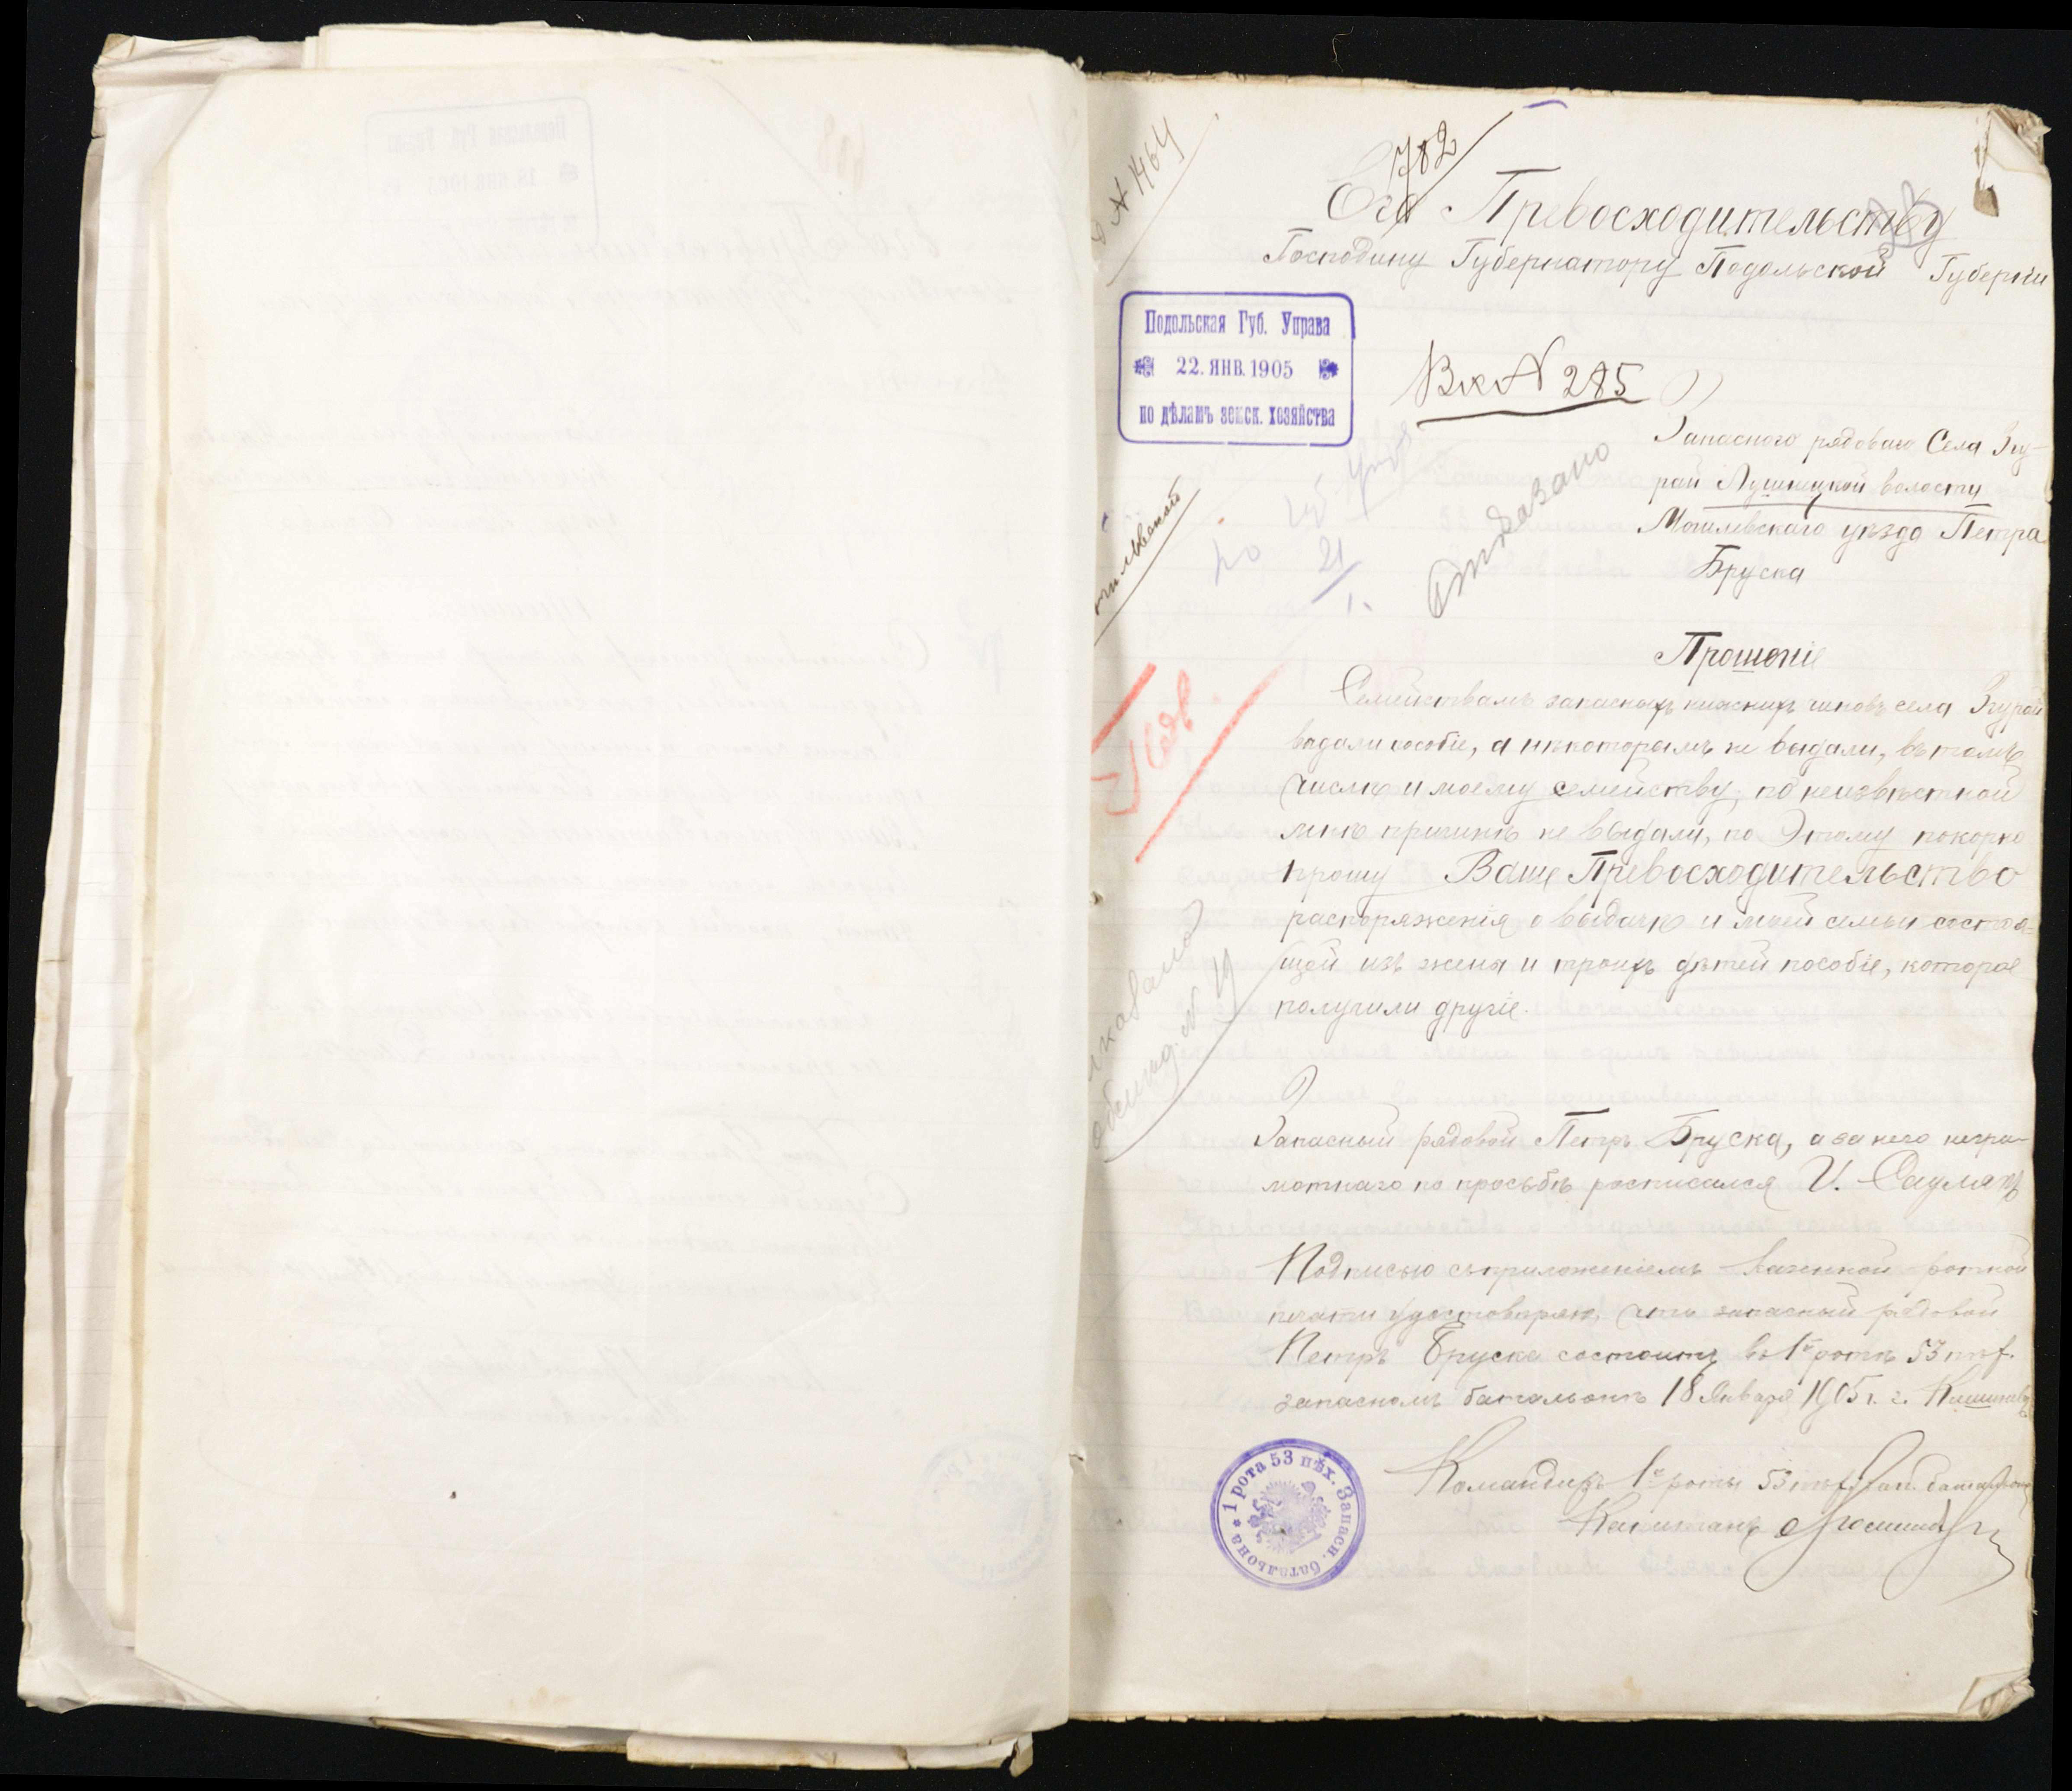 782
Его Превосходительству
Господину Губернатору Подольской Губерніи
№ 1464
Подольская Губ. Управа
22. ЯНВ. 1905
по дѣламъ земск. хозяйства
Вх № 285
Запаснаго рядоваго Села Згу-
рай Лушницкой волости
Могилевскаго уѣзда Петра
Бруска
Отказано
21
1.
Прошеніе
Семействамъ запасныхъ нижнихъ чиновъ села Згурай
вадали пособіе, а нѣкоторымъ не выдали, въ томъ
числѣ и моему семейству, по неизвѣстной
мнѣ причинѣ не выдали, по Этому покорно
прошу Ваше Превосходительство
распоряженія о выдачѣ и моей семьи состоя-
щей изъ жены и троихъ дѣтей пособіе, которое
получили другіе.
Запасный рядовой Петръ Бруска, а за него негра-
мотнаго по просьбѣ росписался И.
Подписью съ приложеніемъ казенной ротной
печати удостовѣряю, что запасный рядовой
Петръ Бруска состоитъ въ 1й ротѣ 53 пѣх.
запасномъ баталіонѣ 18 Января 1905 г. г. Кишиневъ
Командиръ 1й роты 53 пѣх. Зап. баталіона
Капитанъ
1 рота 53 пѣх. Запасн. батальона